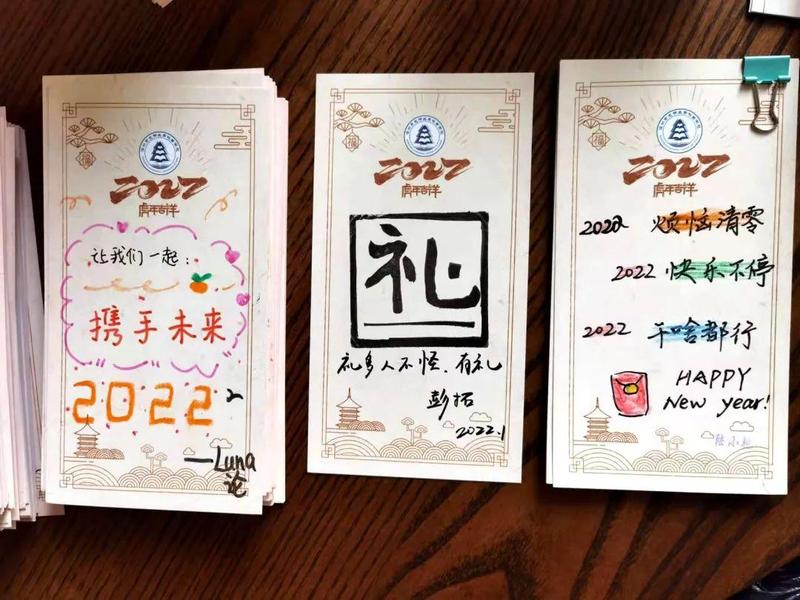 2022
虎年吉祥
福
让我们一起:
携手未来
2022~
—Luna
论
2022
虎年吉祥
福
礼
礼多人不怪、有礼
彭拓
2022.1
2022
虎年吉祥
福
2022 烦恼清零
2022 快乐不停
2022 干啥都行
HAPPY
New year!